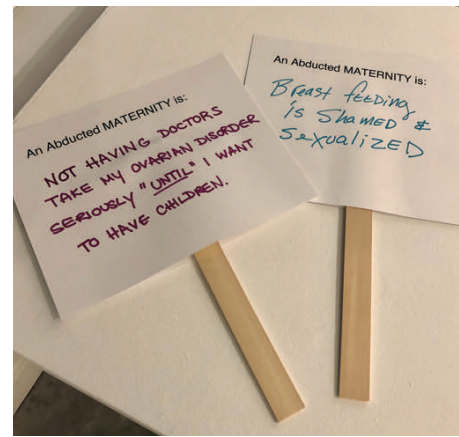 An Abducted MATERNITY is:
NOT HAVING DOCTORS
TAKE MY OVARIAN DISORDER
SERIOUSLY "UNTIL" I WANT
TO HAVE CHILDREN.
An Abducted MATERNITY is:
Breast feeding
is Shamed &
SexualizED